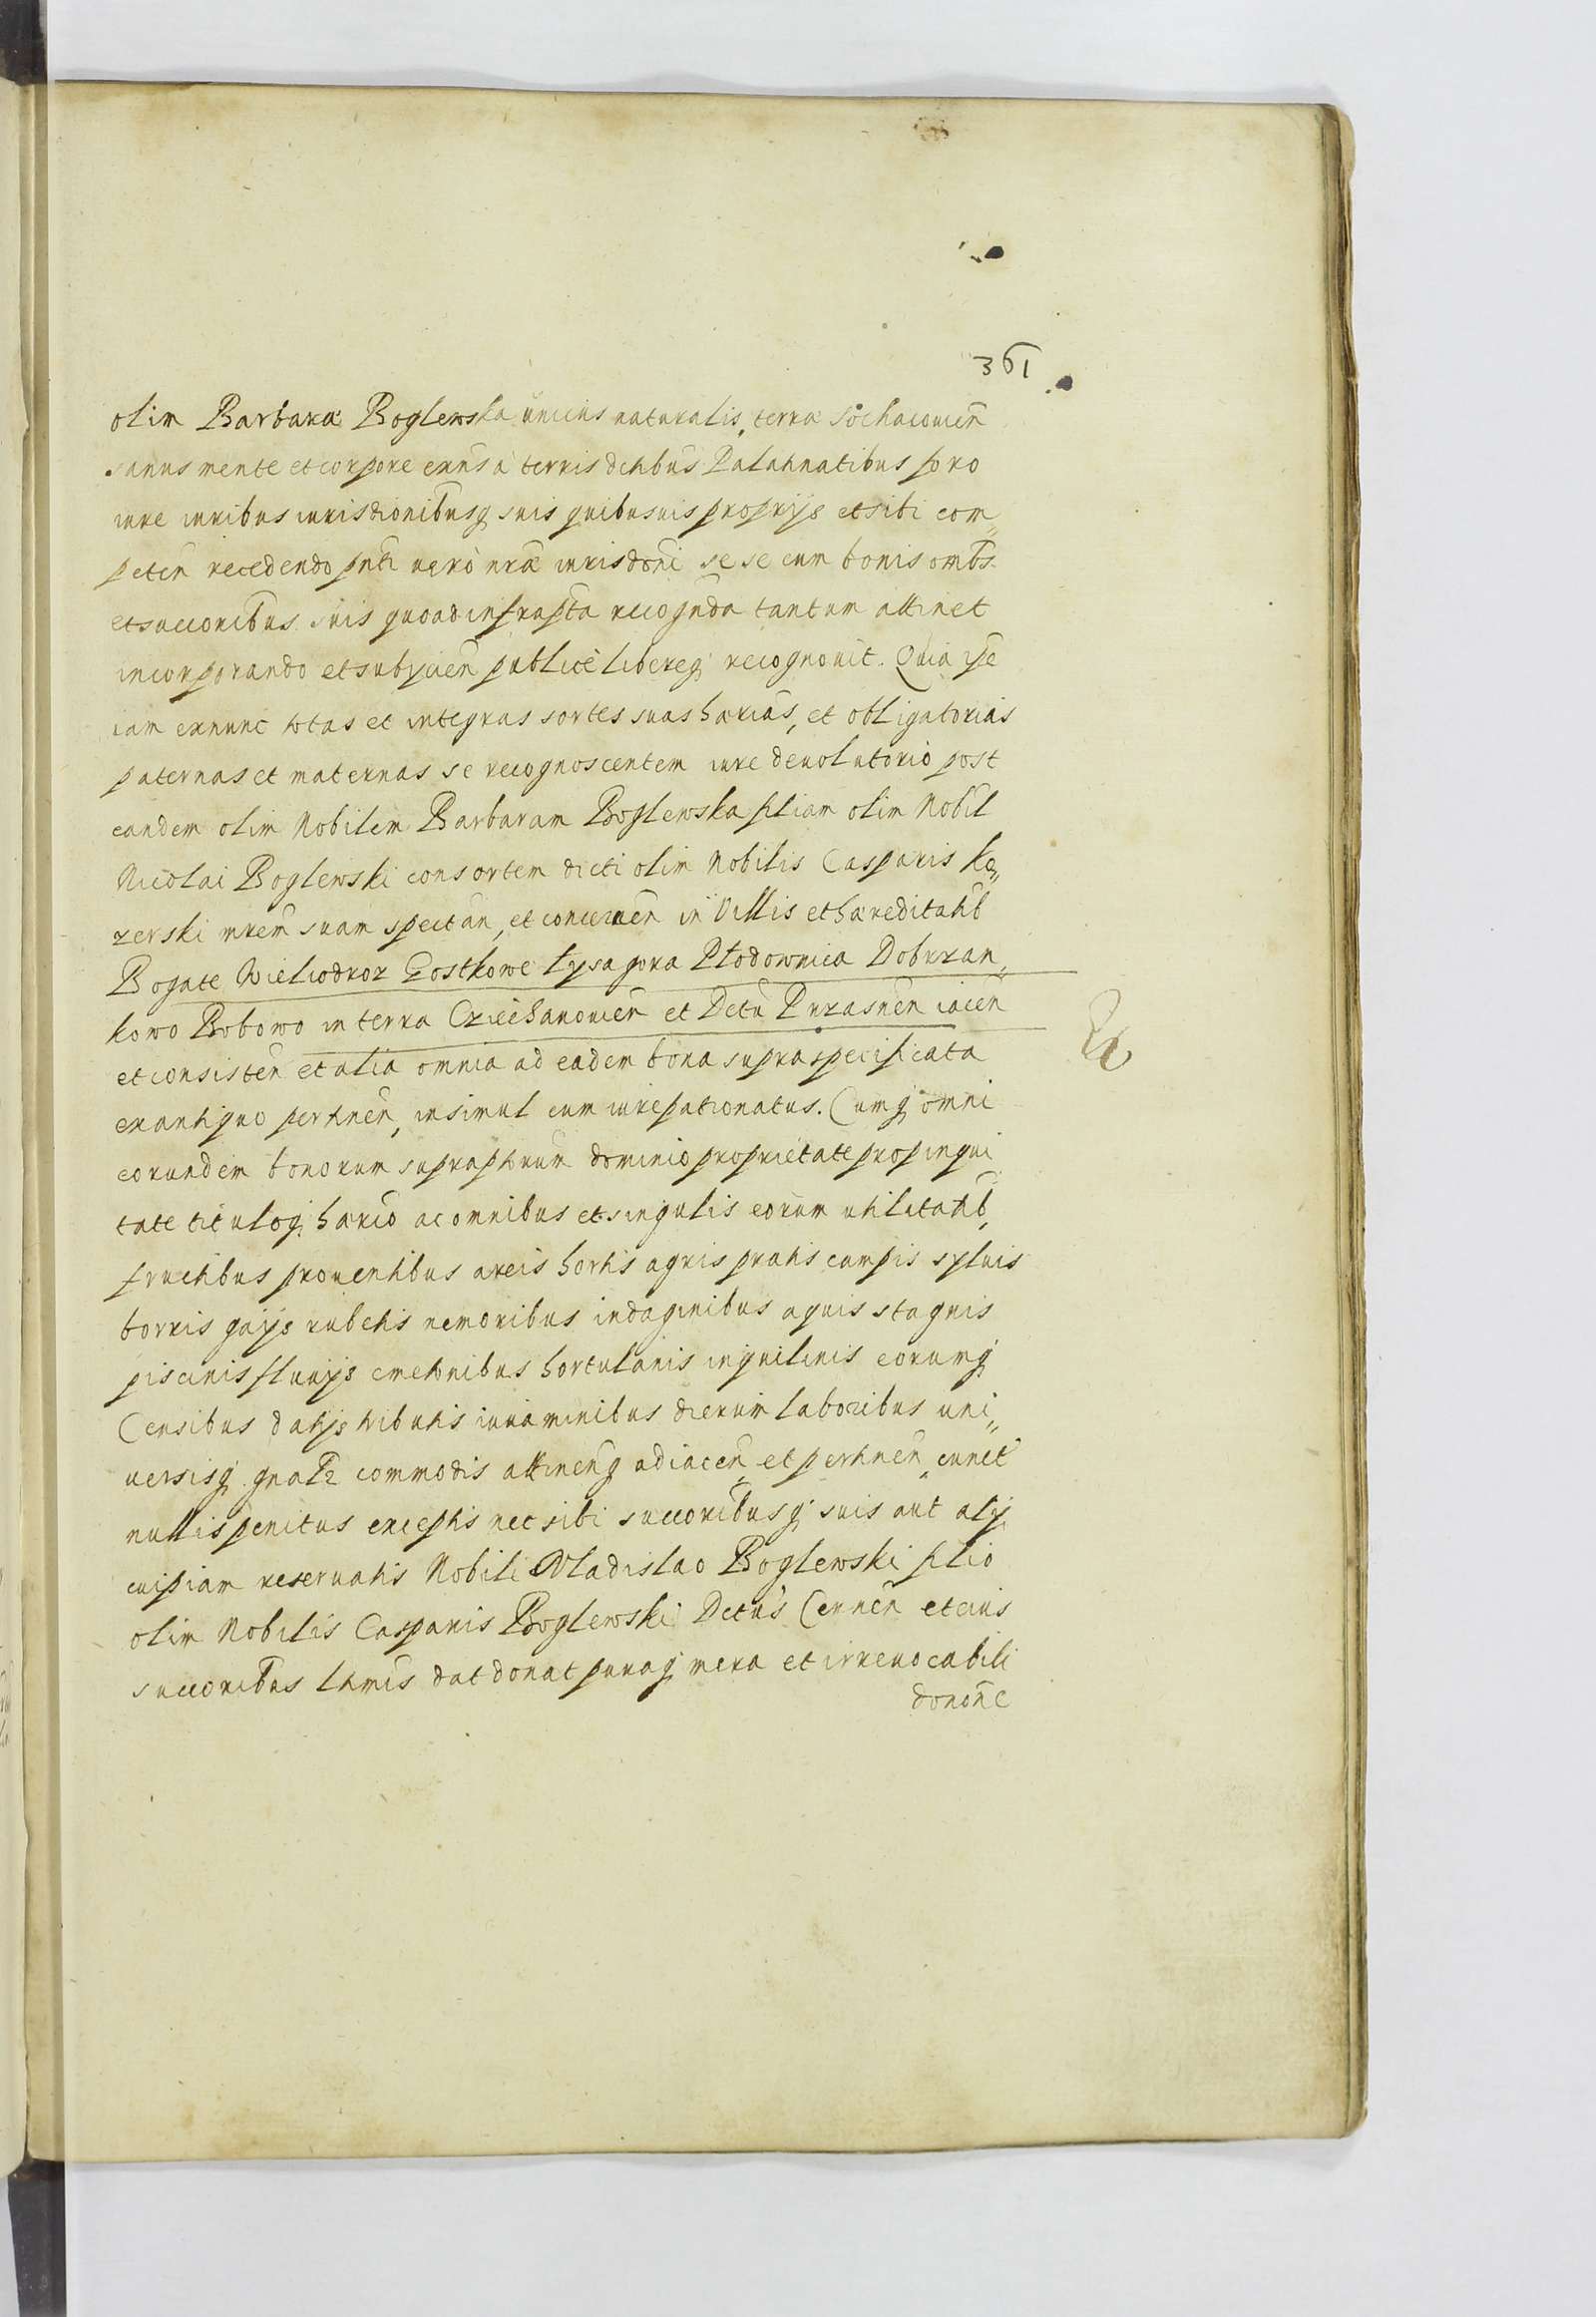 361
olim Barbaræ Boglewska unicus naturalis, terræ Sochacouien̄
sanus mente et corpore exn̄s à terris dctibus Palatinatibus foro
iure iuribus iurisdionibusq̨ suis quibusuis proprijs et sibi com„
peten̄ recedendo pn̄ti uerò nr̄æ iurisdōni se se cum bonis om̄bs
et succoribus suis quoad infrasp̄ta recognd̄a tantum attinet
incorporando et subijcien̄ publicè libereq̨ recognouit. Quia ip̄e
iam exnunc totas et integras sortes suas hærias, et obligatorias
paternas et maternas se recognoscentem iure deuolutorio post
eandem olim Nobilem Barbaram Boglewska filiam olim Nobil
Nicolai Boglewski consortem dicti olim Nobilis Casparis Ko„
zerski mrem̄ suam spectan̄, et concernen̄ in Villis et hæreditatib
Bogate Wielodroz Gostkowe Lysa gora Płodownica Dobrzan„
kowo Bobowo in terra Cziechanouien̄ et Dctu Przasnen̄ iacen̄
et consisten̄ et alia omnia ad eadem bona supraspecificata
exantiquo pertinen̄, insimul cum iurepatronatus. Cumq̨ omni
eorundem bonorum supraptorum dominio proprietate propinqui
tate tituloq̨ hærio ac omnibus et singulis eorum utilitatib,
fructibus prouentibus areis hortis agris pratis campis syluis
borris gaijs rubetis nemoribus indaginibus aquis stagnis
piscinis fluuijs cmetonibus hortulanis inquilinis eorumq̨
Censibus datijs tributis iuuaminibus dierum laboribus uni„
uersisq̨ gnaliz commodis attinen̄q̨ adiacen̄, et pertinen̄, cunct
nullis penitus exceptis nec sibi succoribusq̨ suis aut alij
cuipiam reseruatis Nobili Wladislao Boglewski filio
olim Nobilis Casparis Boglewski Dctus Cernen̄ et eius
succoribus ltmis dat donat puraq̨ mera et irreuocabili
donōne